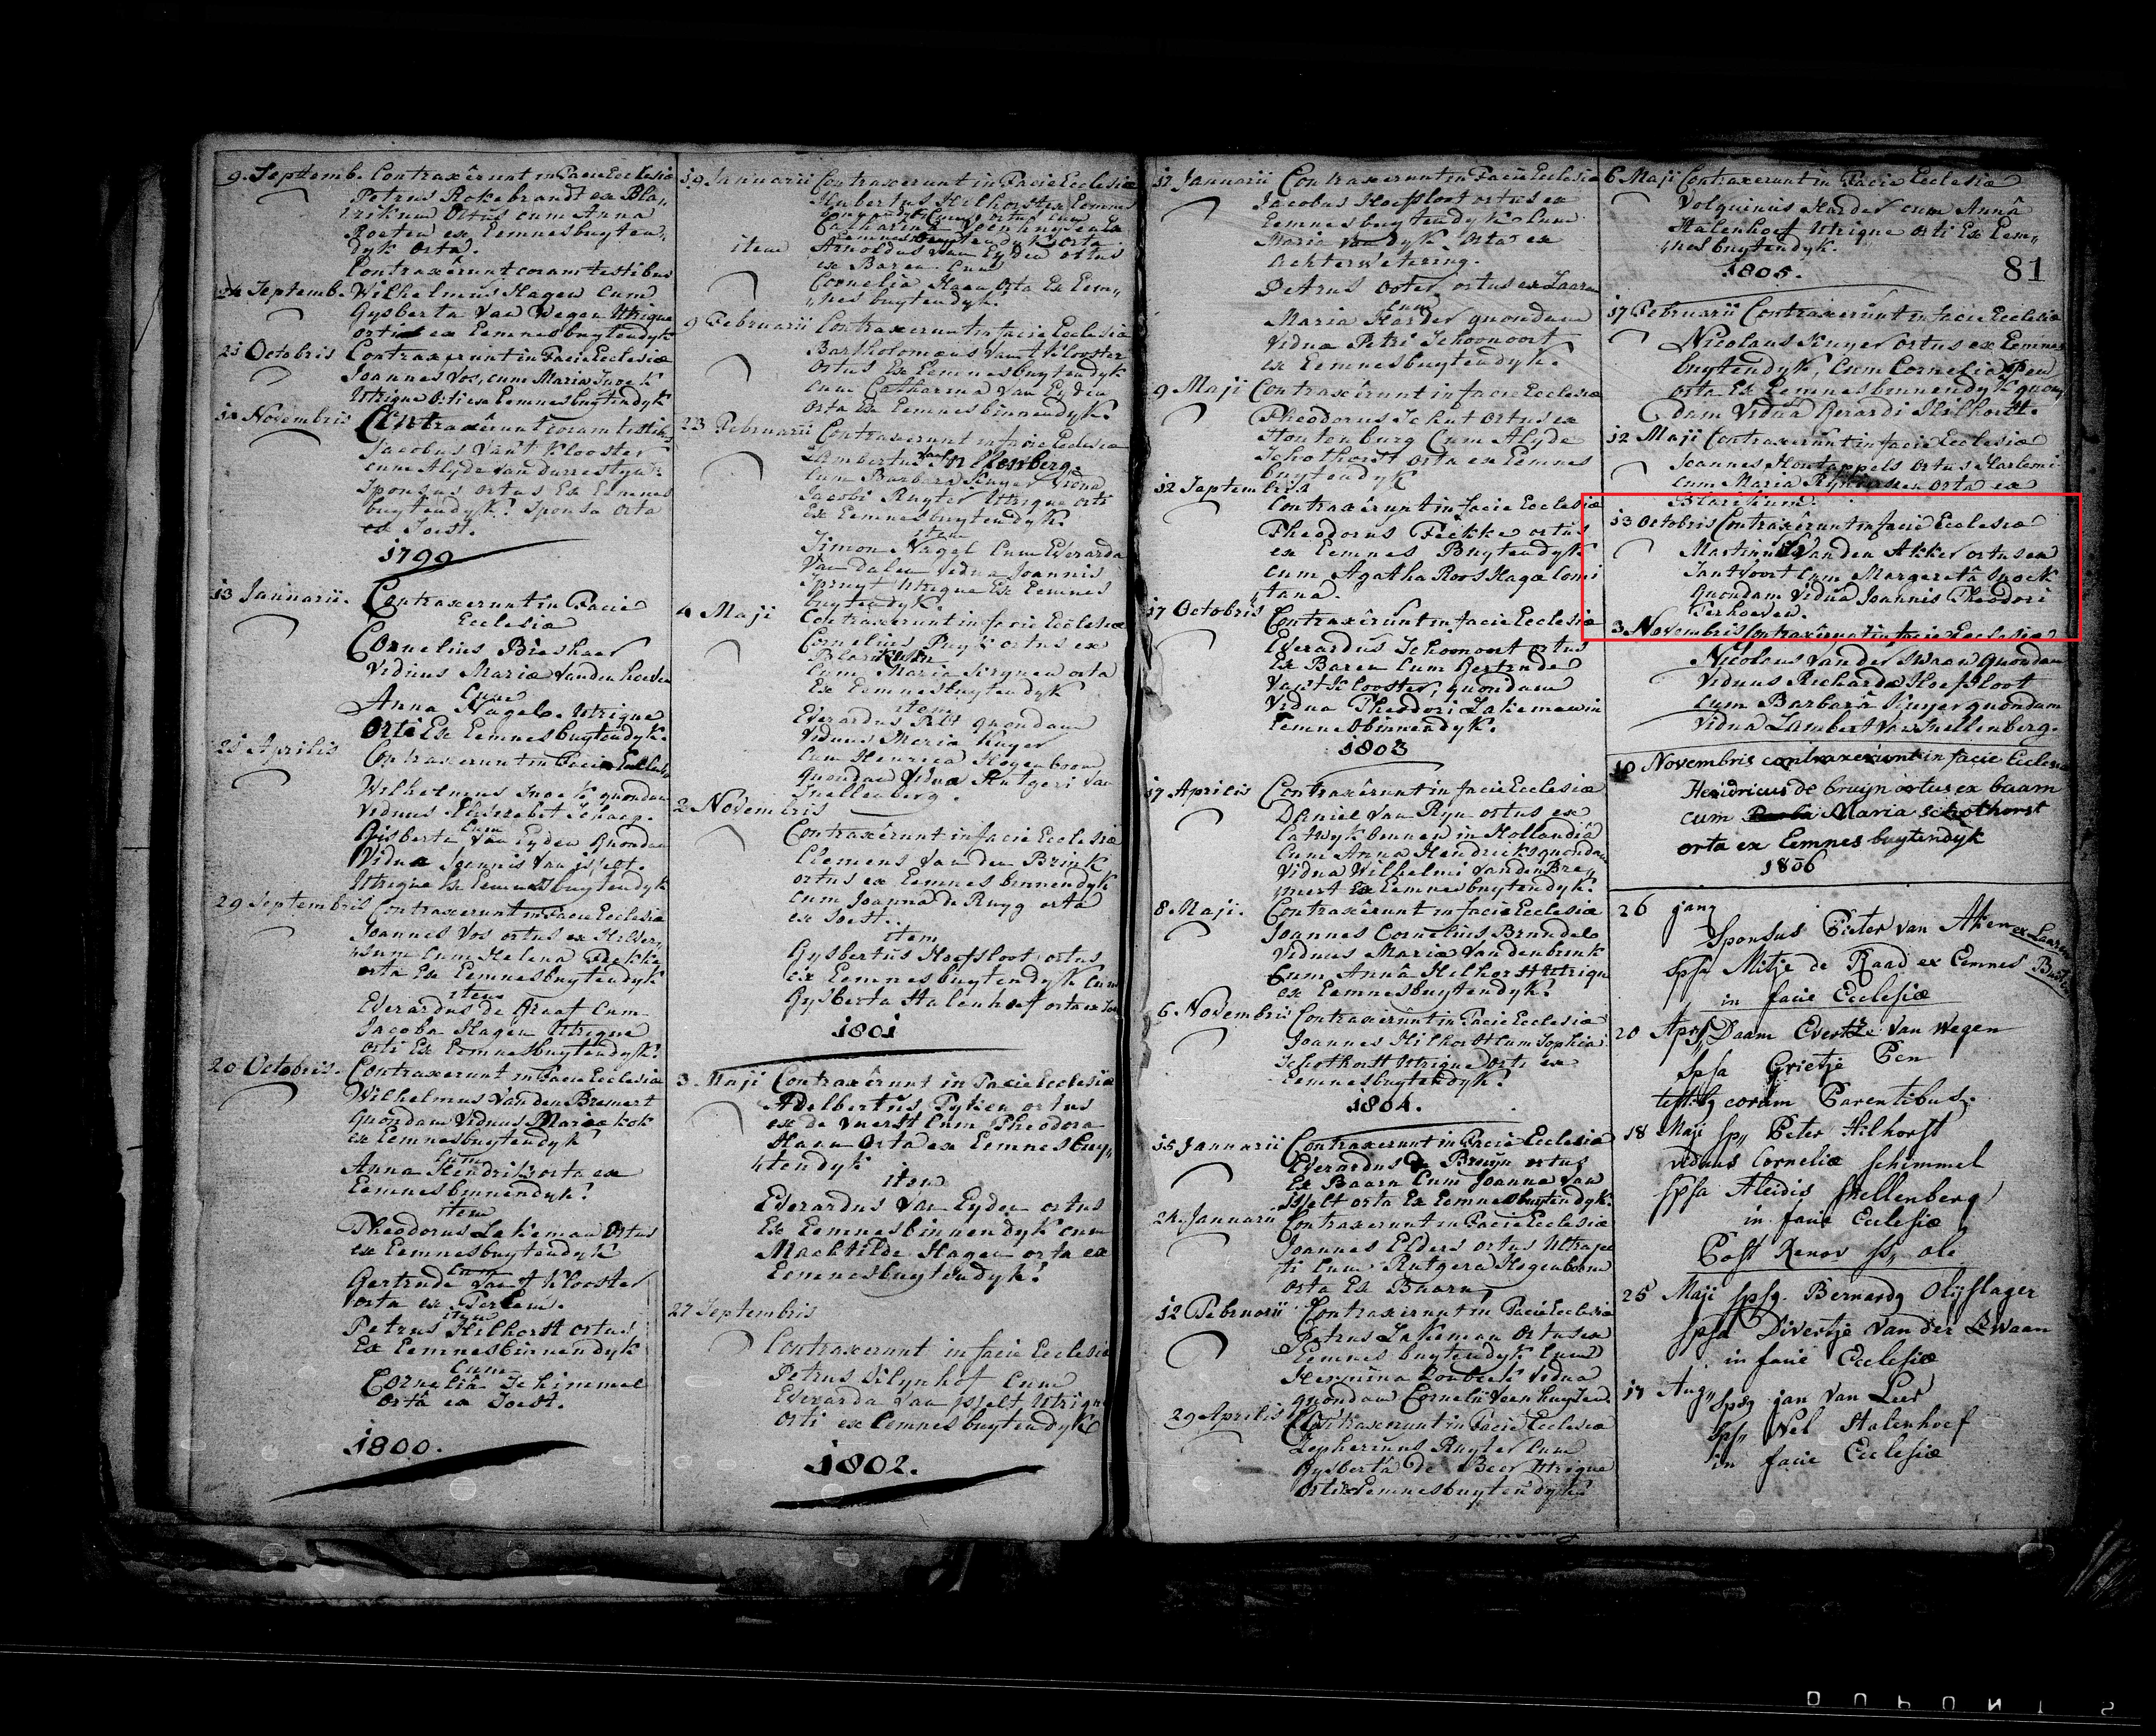 9. Septemb. Contraxêrunt in Facie Ecclesiæ
Petrus Rokebrandt ex Bla„
rikum Ortus cum Anna
Roeten ex Eemnesbuyten„
dyk Orta.
Contraxêrunt coram testibus
24 Septemb. Wilhelmus Hagen Cum
Gysberta Van Wegen Utrique
orti ex Eemnesbuytendyk
21 Octobris Contraxerunt in Facie Ecclesiæ
Joannes Vos, cum Maria Snoek
Utrique Orti ex Eemnesbuytendyk
Novembris Contraxêrunt coram testib„
Jacobus Van't Klooster
cum Alyde van
Sponsus ortus Ex Eemnes
buytendyk. Sponsa orta
ex Soest.
1799
13 Januarii. Contraxerunt in Facie
Ecclesiæ
Cornelius Bieshaer
Viduus Mariæ Vanden
Cum
Anna Nagel. Utrique
Orti Ex Eemnesbuytendyk.
Aprilis Contraxerunt in Facie Ecclesiæ
Wilhelmus Snoek quondam
Viduus Elisabet Schaep.
Cum
Gisberta Van Eyden Quondam
Vidua Joannis Van isselt.
Utrique Ex Eemnesbuytendyk
29 Septembris Contraxerunt in Facie Ecclesiæ
Joannes Vos ortus ex Hilver„
sum Cum Helena Fekke
orta Ex Eemnesbuytendyk
item
Everardus de Graaf Cum
Jacoba Hagen Utrique
orti Ex Eemnesbuytendyk.
20 Octobris. Contraxerunt in Facie Ecclesiæ
Wilhelmus Vanden Bremert
quondam Viduus Mariæ kok
ex Eemnesbuytendyk
Cum
Anna Hendriks orta ex
Eemnesbinnendyk.
item
Theodorus Lakeman Ortus
ex Eemnesbuytendyk
Cum
Gertrude Van't Klooster
orta ex
item
Petrus Hilhorst ortus
Ex Eemnesbinnendyk
Cum
Cornelia Schimmel
Orta ex Soest.
1800.
19 Januarii Contraxerunt in Facie Ecclesiæ
Hubertus Hilhorst ex Eemnes
ortus cum
Catharina Veenhuysen
Eemnesbuytendyk orta
item Arnoldus Van Eyden ortus
ex Baren Cum
Cornelia Haen Orta Ex Eem„
„nes buytendyk.
9 Februarii Contraxêrunt in facie Ecclesiæ
Bartholomæus Van't Klooster
ortus Ex Eemnesbuytendyk
cum Catharina Van Eyden
orta Ex Eemnesbinnendyk.
23 Februarii Contraxêrunt in facie Ecclesiæ
Lambertus van Snellenberg
Cum Barbara Ruyter Vidua
Jacobi Ruyter Utrique orti
Ex Eemnesbuytendyk.
item
Simon Nagel Cum Everarda
Van Dalen Vidua Joannis
Spruyt Utrique Ex Eemnes
buytendyk.
4 Maji Contraxerunt in facie Ecclesiæ
Cornelius Puyk ortus ex
Blarikum
Cum Maria Serynen orta
Ex Eemnesbuytendyk
item
Everardus Pelt quondam
Viduus Maria Ruyer
Cum Henrica Hogenboom
quondam Vidua Rutgeri Van
Snellenberg.
2 Novembris
Contraxêrunt in facie Ecclesiæ
Clemens Van den Brink
ortus ex Eemnes binnendyk
Cum Joanna de Ruyg orta
ex Soest.
item
Gysbertus Hoefsloot ortus
ex Eemnesbuytendyk Cum
Gysberta Stalenhoef orta ex
1801
3 Maji Contraxêrunt in Facie Ecclesiæ
Adelbertus Fyken ortus
ex de Vuerst Cum Theodora
Haen Orta ex Eemnes buy„
„tendyk
item
Everardus Van Eyden ortus
Ex Eemnesbinnendyk cum
Machtilde Hagen orta ex
Eemnesbuytendyk.
27 Septembris
Contraxerunt in facie Ecclesiæ
Petrus Cum
Everarda Van Isselt Utrique
orti ex Eemnes buytendyk
1802.
17 Januarii Contraxerunt in Facie Ecclesiæ
Jacobus Hoefsloot ortus ex
Eemnesbuytendyk Cum
Maria Van dyk Orta ex
Achterwetering.
Petrus Ooter ortus ex Laaren
Cum
Maria Harder quondam
Vidua Petri Schoonoort
ex Eemnesbuytendyk.
9 Maji Contraxêrunt in facie Ecclesiæ
Theodorus Schut Ortus ex
Houtenburg Cum Alyde
Schothorst orta ex Eemnes
buytendyk
12 Septembris
Contraxêrunt in facie Ecclesiæ
Theodorus Fekke ortus
ex Eemnes Buytendyk
cum Agatha Roos Hagæ Comi
tana.
17 Octobris Contraxêrunt in facie Ecclesiæ
Everardus Schoonoort ortus
Ex Baren Cum Gertrude
Van't Klooster, quondam
Vidua Theodori Lakeman in
Eemnesbinnendyk.
1803
17 Aprilis Contraxêrunt in facie Ecclesiæ
Daniel Van Ryn ortus ex
Catwyk binnen in Hollandiâ
Cum Anna Hendriks quondam
Vidua Wilhelmi Vanden Bre„
„mert Ex Eemnesbuytendyk.
8 Maji. Contraxêrunt in facie Ecclesiæ
Joannes Cornelius Brundel
Viduus Mariæ Vandenbrink
Cum Annâ Hilhorst Utrique
ex Eemnesbuytendyk.
6 Novembris Contraxerunt in Facie Ecclesiæ
Joannes Hilhorst Cum Sophia
Schothorst Utrique Orti ex
Eemnesbuytendyk.
1804.
15 Januarii Contraxerunt in Facie Ecclesiæ
Everardus de Bruyn ortus
Ex Baarn Cum Joanna Van
Isselt orta Ex Eemnesbuytendyk.
24 Januarii Contraxerunt in Facie Ecclesiæ
Joannes Elders ortus Ultraje
ti Cum Rutgera Hogenboom
orta Ex Baarn
12 Februarii Contraxerunt in Facie Ecclesiæ
Petrus Lakeman Ortus ex
Eemnes buytendyk Cum
Hermina Vidua
quondam Cornelii Veenhuysen.
29 Aprilis Contraxerunt in Facie Ecclesiæ
Zepherinus Ruyter Cum
Gysberta de Beer Utrique
Orti ex Eemnesbuytendyk.
6 Maji Contraxerunt in Facie Ecclesiæ
Volquinus Harder cum Annâ
Stalenhoef Utrique orti Ex Eem„
„nes buytendyk.
1805.
81
17 Februarii Contraxêrunt in facie Ecclesiæ
Nicolaus Ruyer ortus ex Eemnes
buytendyk, Cum Cornelia Pen
orta Ex Eemnesbinnendyk quon
dam Viduâ Gerardi Hilhorst.
12 Maji Contraxêrunt in facie Ecclesiæ
Joannes Houtappels ortus Harlemi
cum Maria orta ex
Blarikum.
13 Octobris Contraxêrunt in facie Ecclesiæ
Martinus Vanden Akker ortus ex
Santvoort Cum Margeretâ Snoek
Quondam Viduâ Joannis Theodori
Terhoeven.
3 Novembris Contraxêrunt in facie Ecclesiæ
Nicolaus Van der Swaan quondam
Viduus Richardæ Hoefsloot
Cum Barbarâ Ruyer quondam
Vidua Lambert Van Snellenberg.
10 Novembris contraxerunt in facie Ecclesiæ
Hendricus de bruijn ortus ex baarn
cum Maria schothorst
orta ex Eemnes buytendyk
1806
26 jany
Sponsus Pieter van Aken ex Laaren
Spsa Mitje de Raad ex Eemnes
in facie Ecclesiæ
20 Apr, Daam Evertze Van Wegen
Spsa Grietje Pen
testib, coram Parentibus.
18 Maji Sp, Peter Hilhorst
viduus Corneliæ Schimmel
Spsa Aleidis Snellenberg
in facie Ecclesiæ
Post Renov
25 Maji Spsq. Bernardg Olijslager
Spsa Divertje van der Zwaan
in facie Ecclesiæ
17 Aug, Spsg jan Van Leer
Sps, Nel Stalenhoef
in facie Ecclesiæ